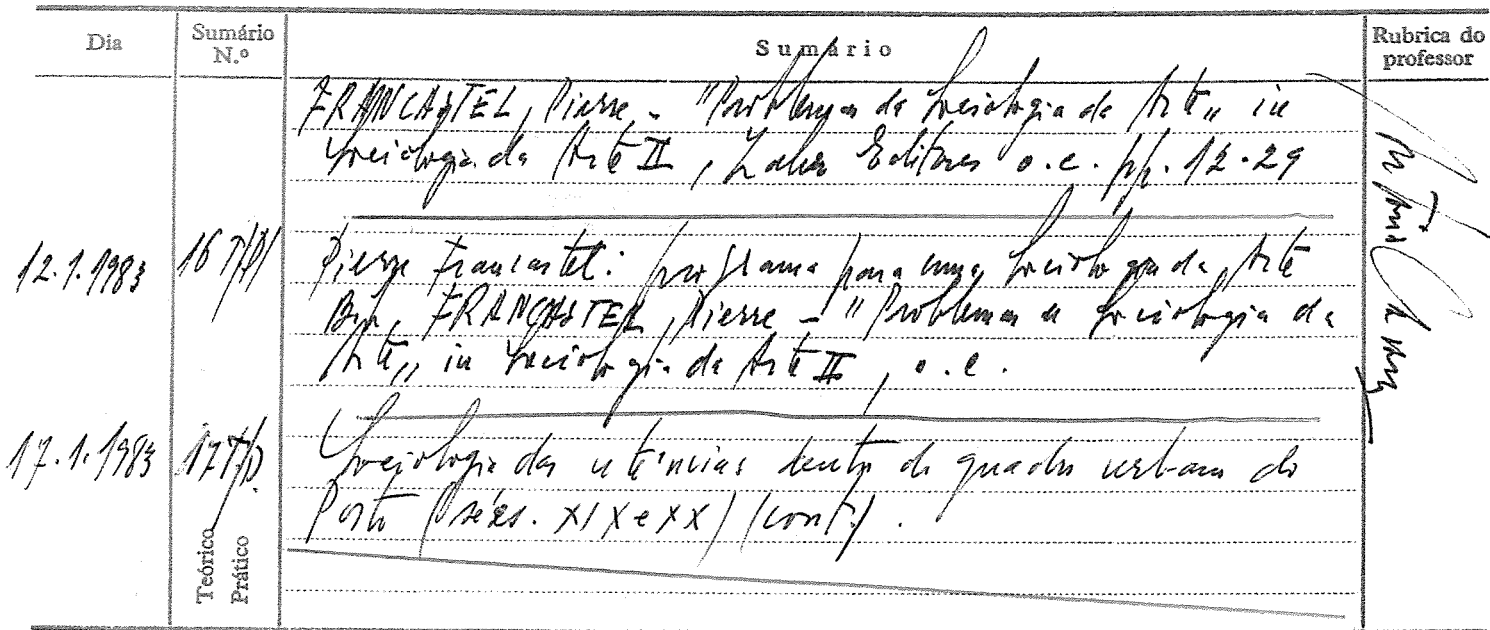 Dia
Sumário N.º
Sumário
Rubrica do professor
FRANCASTEL, Pierre - "Problemas da Sociologia da Arte" in
Sociologia da Arte II, Zahar Editores o.c. pp. 12-29
12.1.1983 16 T/P/ Pierre Francastel: programa para uma Sociologia da Arte
Bib. FRANCASTEL, Pierre - "Problemas da Sociologia da
Arte" in Sociologia da Arte II, o.c.
17.1.1983 17 T/P. Sociologia das dentro do quadro urbano do
Porto (sécs. XIX e XX) (cont.).
Teórico
Prático